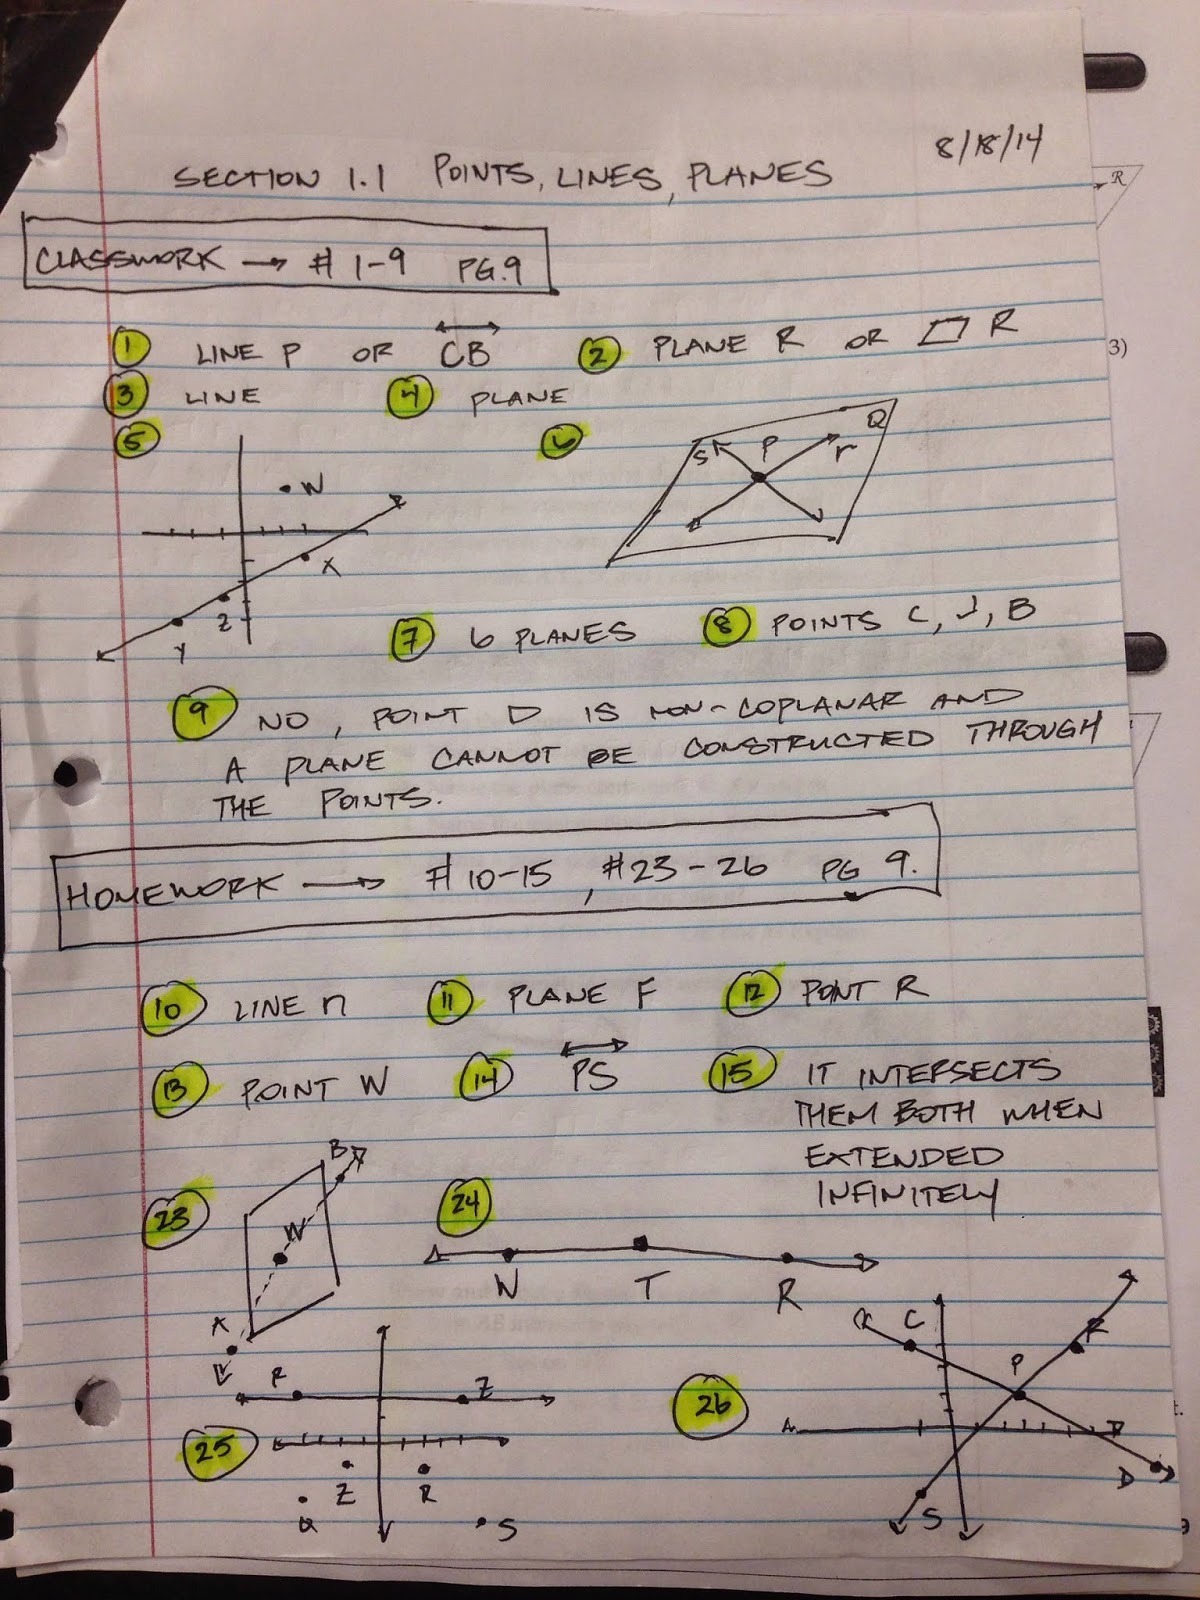 8/18/14
SECTION 1.1 POINTS, LINES, PLANES
CLASSWORK → # 1-9 PG. 9
1 LINE P OR CB 2 PLANE R OR ▱ R
3 LINE 4 PLANE
5 6
W X Z Y
S P r Q
7 6 PLANES 8 POINTS C, J, B
9 NO, POINT D IS NON-COPLANAR AND
A PLANE CANNOT BE CONSTRUCTED THROUGH
THE POINTS.
HOMEWORK → # 10-15, #23-26 PG 9.
10 LINE n 11 PLANE F 12 POINT R
13 POINT W 14 PS 15 IT INTERSECTS
THEM BOTH WHEN
EXTENDED
INFINITELY
23 24
B W A
W T R
25 26
R Z
Z R
Q S
C P R
S D
R
3)